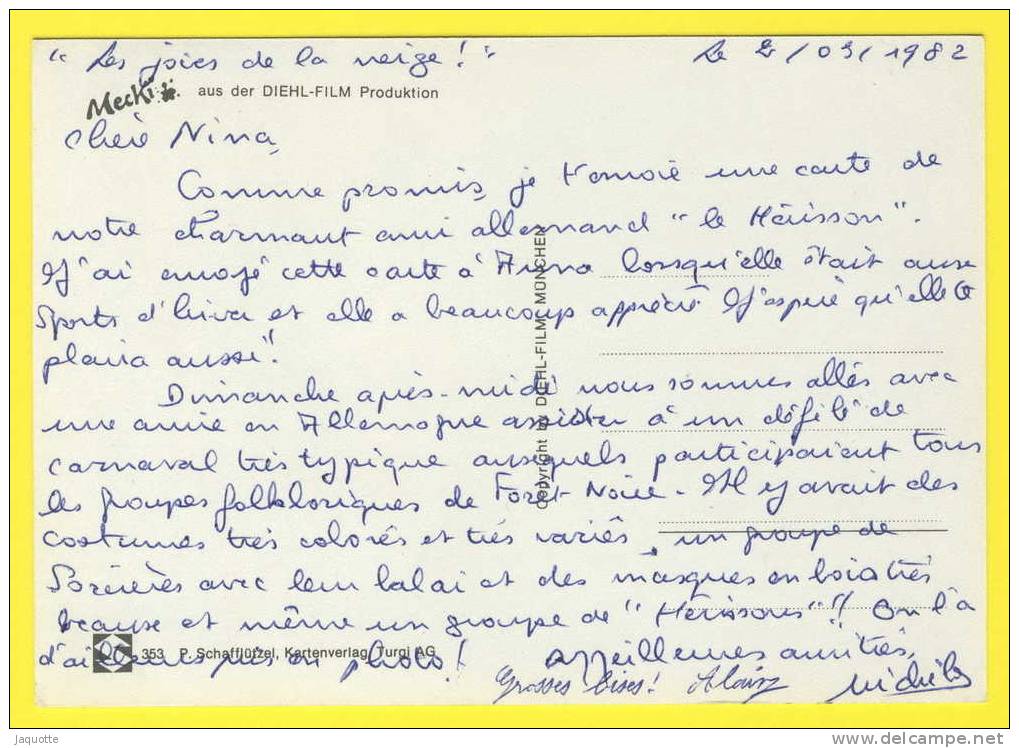 " Les joies de la neige ! " Le 2/03/1982
Mecki aus der DIEHL-FILM Produktion
Chère Nina,
Comme promis, je t'envoie une carte de
notre charmant ami allemand "le Hérisson".
J'ai envoyé cette carte à Anna lorsqu'elle était aux
Sports d'hiver et elle a beaucoup apprécié J'espère qu'elle te
plaira aussi !
Dimanche après-midi nous sommes allés avec
une amie en Allemagne assister à un défilé de
carnaval très typique auxquels participaient tous
les groupes folkloriques de Forêt Noire. Il y avait des
costumes très colorés et très variés, un groupe de
Sorcières avec leur balai et des masques en bois très
beaux et même un groupe de "Hérissons" !! On l'a
d'ailleurs pris en photo !
353 P. Schafflützel, Kartenverlag, Turgi AG
Meilleures amitiés,
Grosses bises !
Copyright by DIEHL-FILM MÜNCHEN
Jaquotte
www.delcampe.net